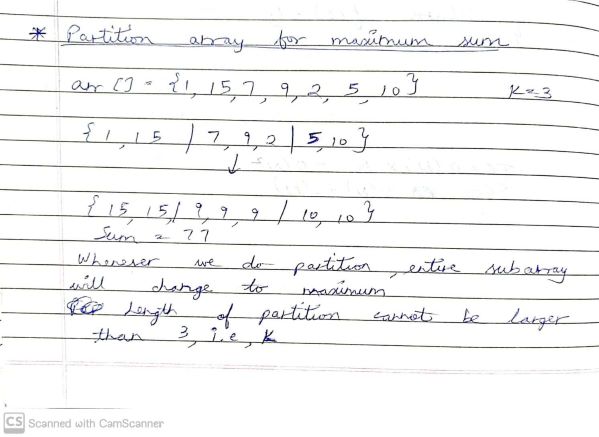 * Partition array for maximum sum
arr [] = {1, 15, 7, 9, 2, 5, 10} K=3
{1, 15 | 7, 9, 2 | 5, 10}
↓
{15, 15 / 9, 9, 9 / 10, 10}
Sum = 77
Whenever we do partition, entire subarray
will change to maximum
Length of partition cannot be larger
than 3, i.e, K
CS Scanned with CamScanner